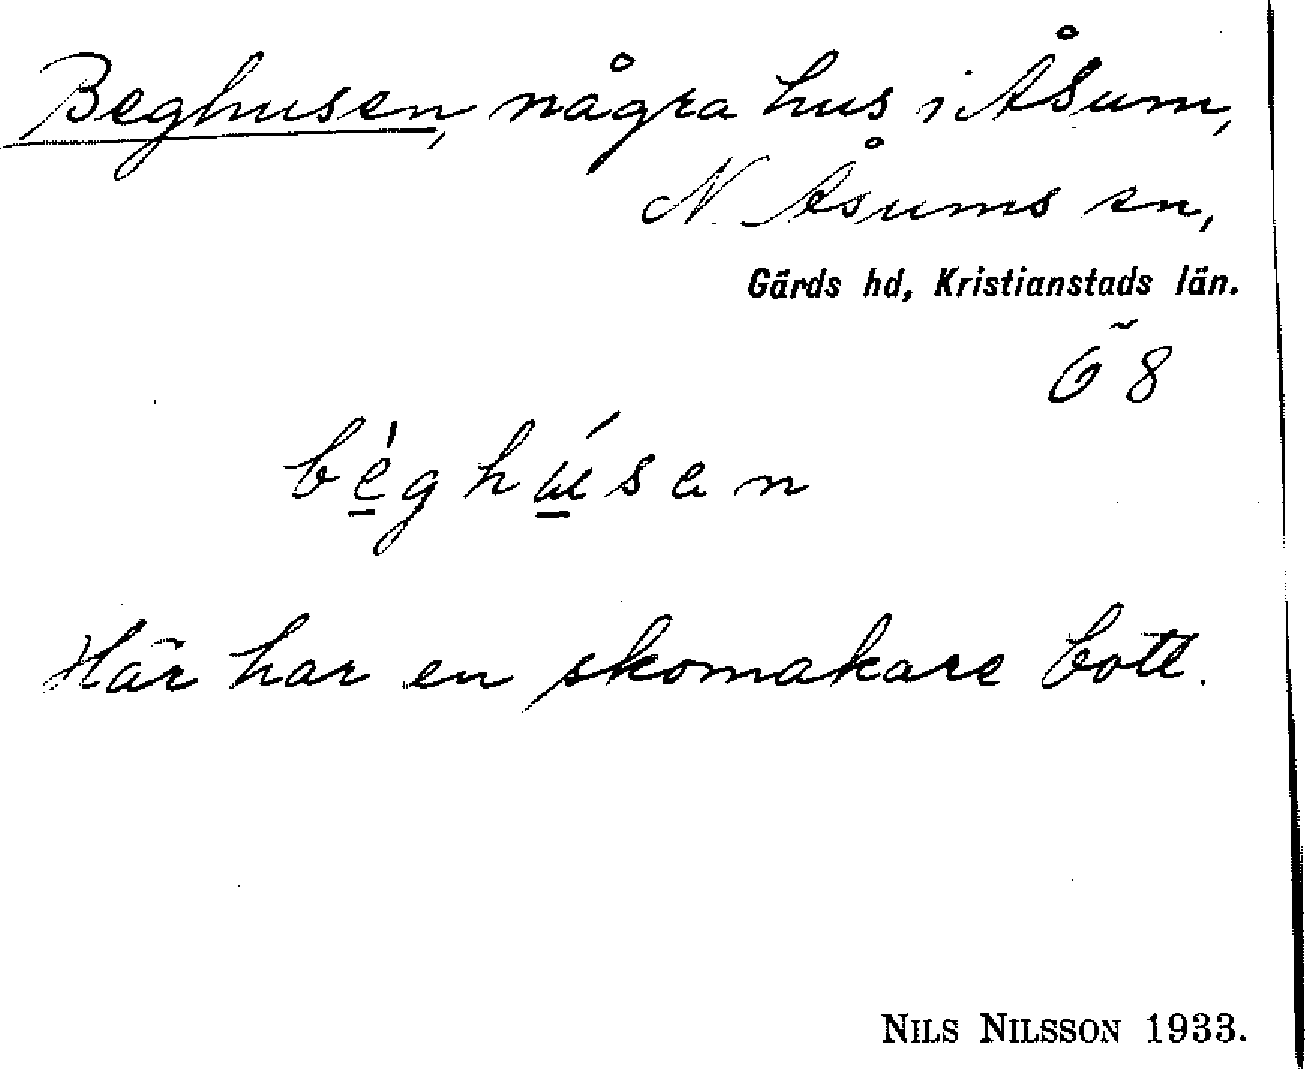 Beghusen, några hus i Åsum,
N. Åsums sn,
Gärds hd, Kristianstads län.
Ö 8
bèghúsen
Här har en skomakare bott.
NILS NILSSON 1933.